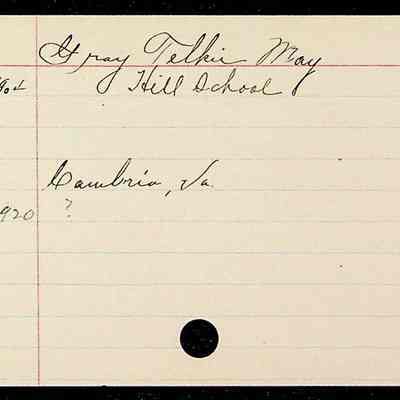 Gray Telkie May
Hill School
Cambria, Va.
920 ?